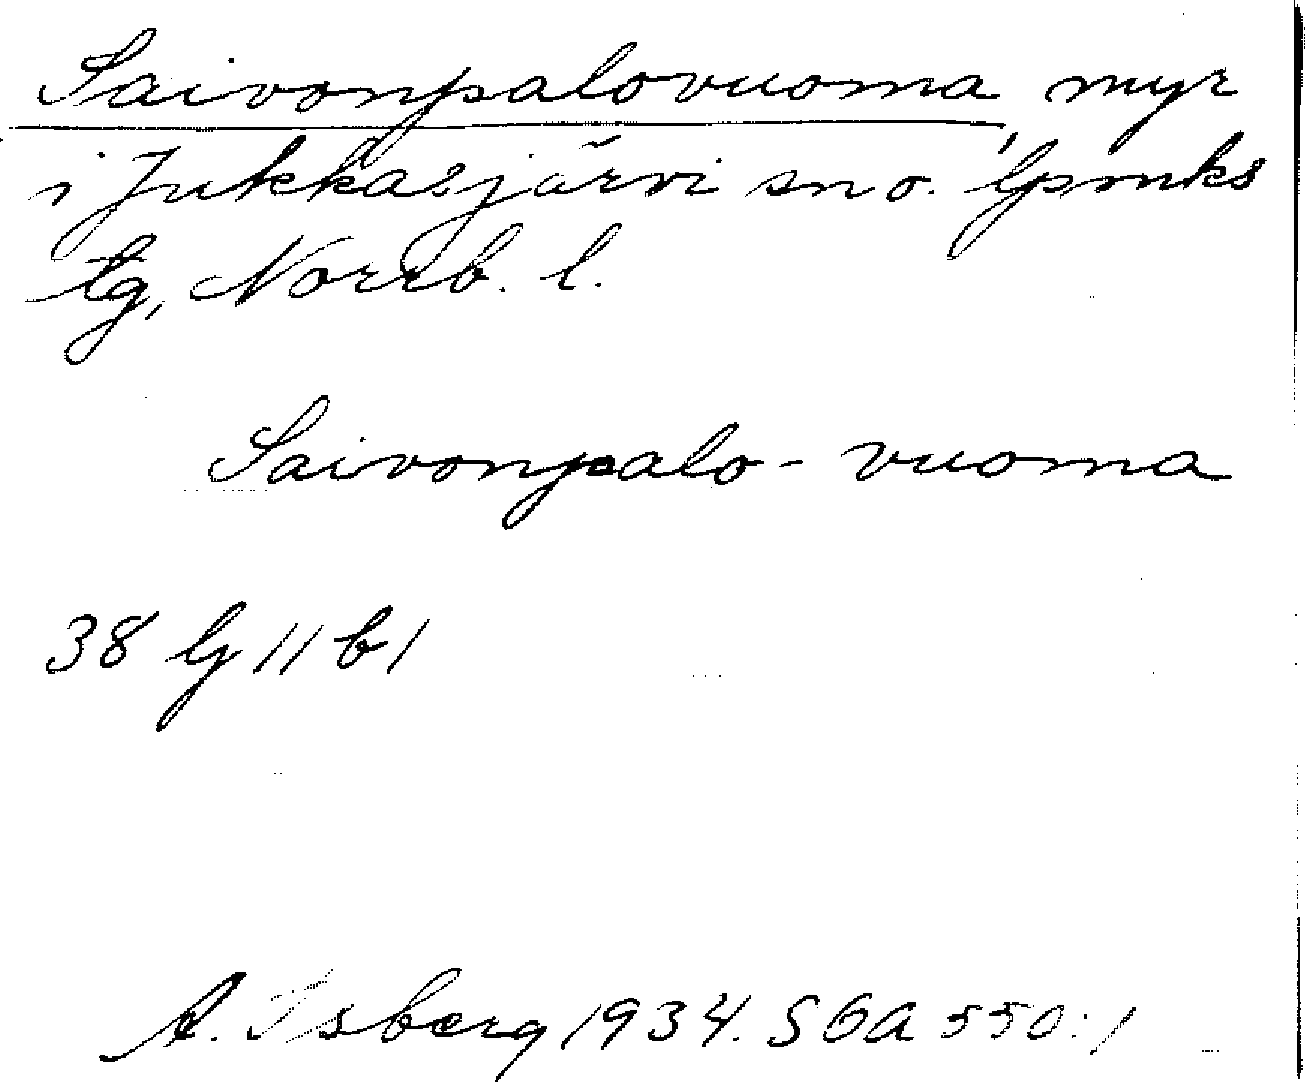 Saivonpalovuoma, myr
i Jukkasjärvi sn o. lpmks
tg, Norrb. l.
Saivonpalo-vuoma
38 G 11 b 1
A. Isberg 1934. SOA 550:1